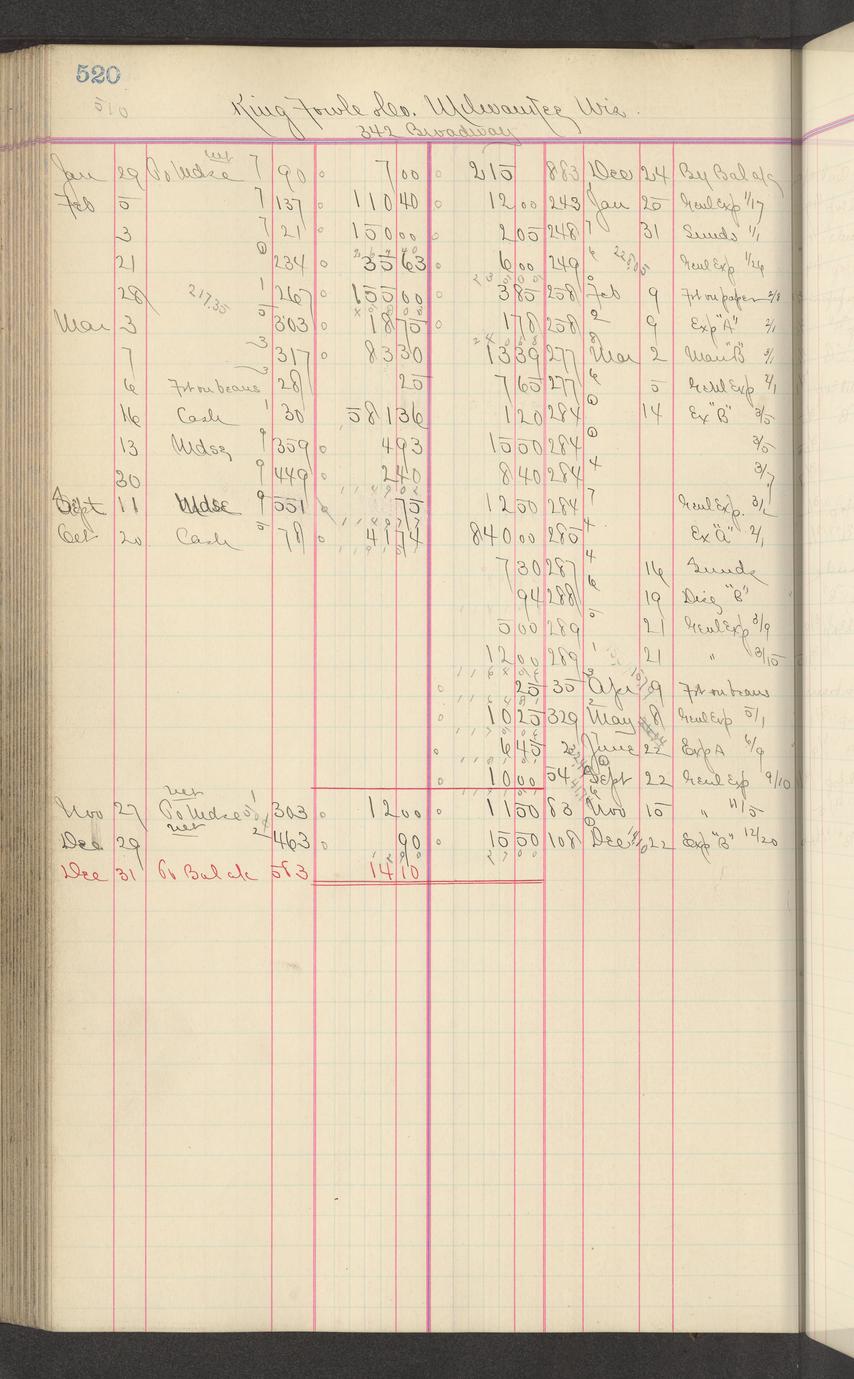 520
510
King Fowle & Co. Milwaukee, Wis.
342 Broadway
Jan 29 To Mdse net 7 90 7 00 215 883 Dec 24 By Bal c/d
Feb 5 7 137 110 40 12 00 243 Jan 25 Genl Exp 1/17
3 7 21 150 00 2 05 248 7 31 Sunds 1/1
21 234 35 63 6 00 249 228.05 Genl Exp 1/26
28 217.35 1 267 155 00 3 85 258 Feb 9 Frt on paper 2/8
Mar 3 5 303 18 75 1 78 258 9 Exp "A" 2/1
7 3 317 83 30 13 39 277 Mar 2 Man "B" 3/1
6 Frt on beans 3 28 25 7 65 277 5 Genl Exp 2/1
16 Cash 1 30 581 36 1 20 284 14 Ex "B" 3/5
13 Mdse 9 359 4 93 15 50 284 3/5
30 9 449 2 40 8 40 284 4 3/7
Sept 11 Mdse 9 551 75 12 50 284 7 Genl Exp. 3/2
Oct 20 Cash 5 78 41 74 840 00 285 4 Ex "A" 2/1
7 30 287 4 16 Sunds
94 288 6 19 Disc "B"
5 00 289 5 21 Genl Exp 3/9
12 00 289 1 21 " 3/15
25 35 3 Apr 9 Frt on beans
10 25 329 2 May 8 Genl Exp 5/1
6 45 2 June 22 Exp A 6/9
10 00 54 Sept 22 Genl Exp 9/10
Nov 27 To Mdse net 303 12 00 11 50 83 Nov 15 " 11/5
Dec 29 net 2 463 90 15 50 108 Dec 22 Exp "B" 12/20
Dec 31 To Bal c/d 583 14 10